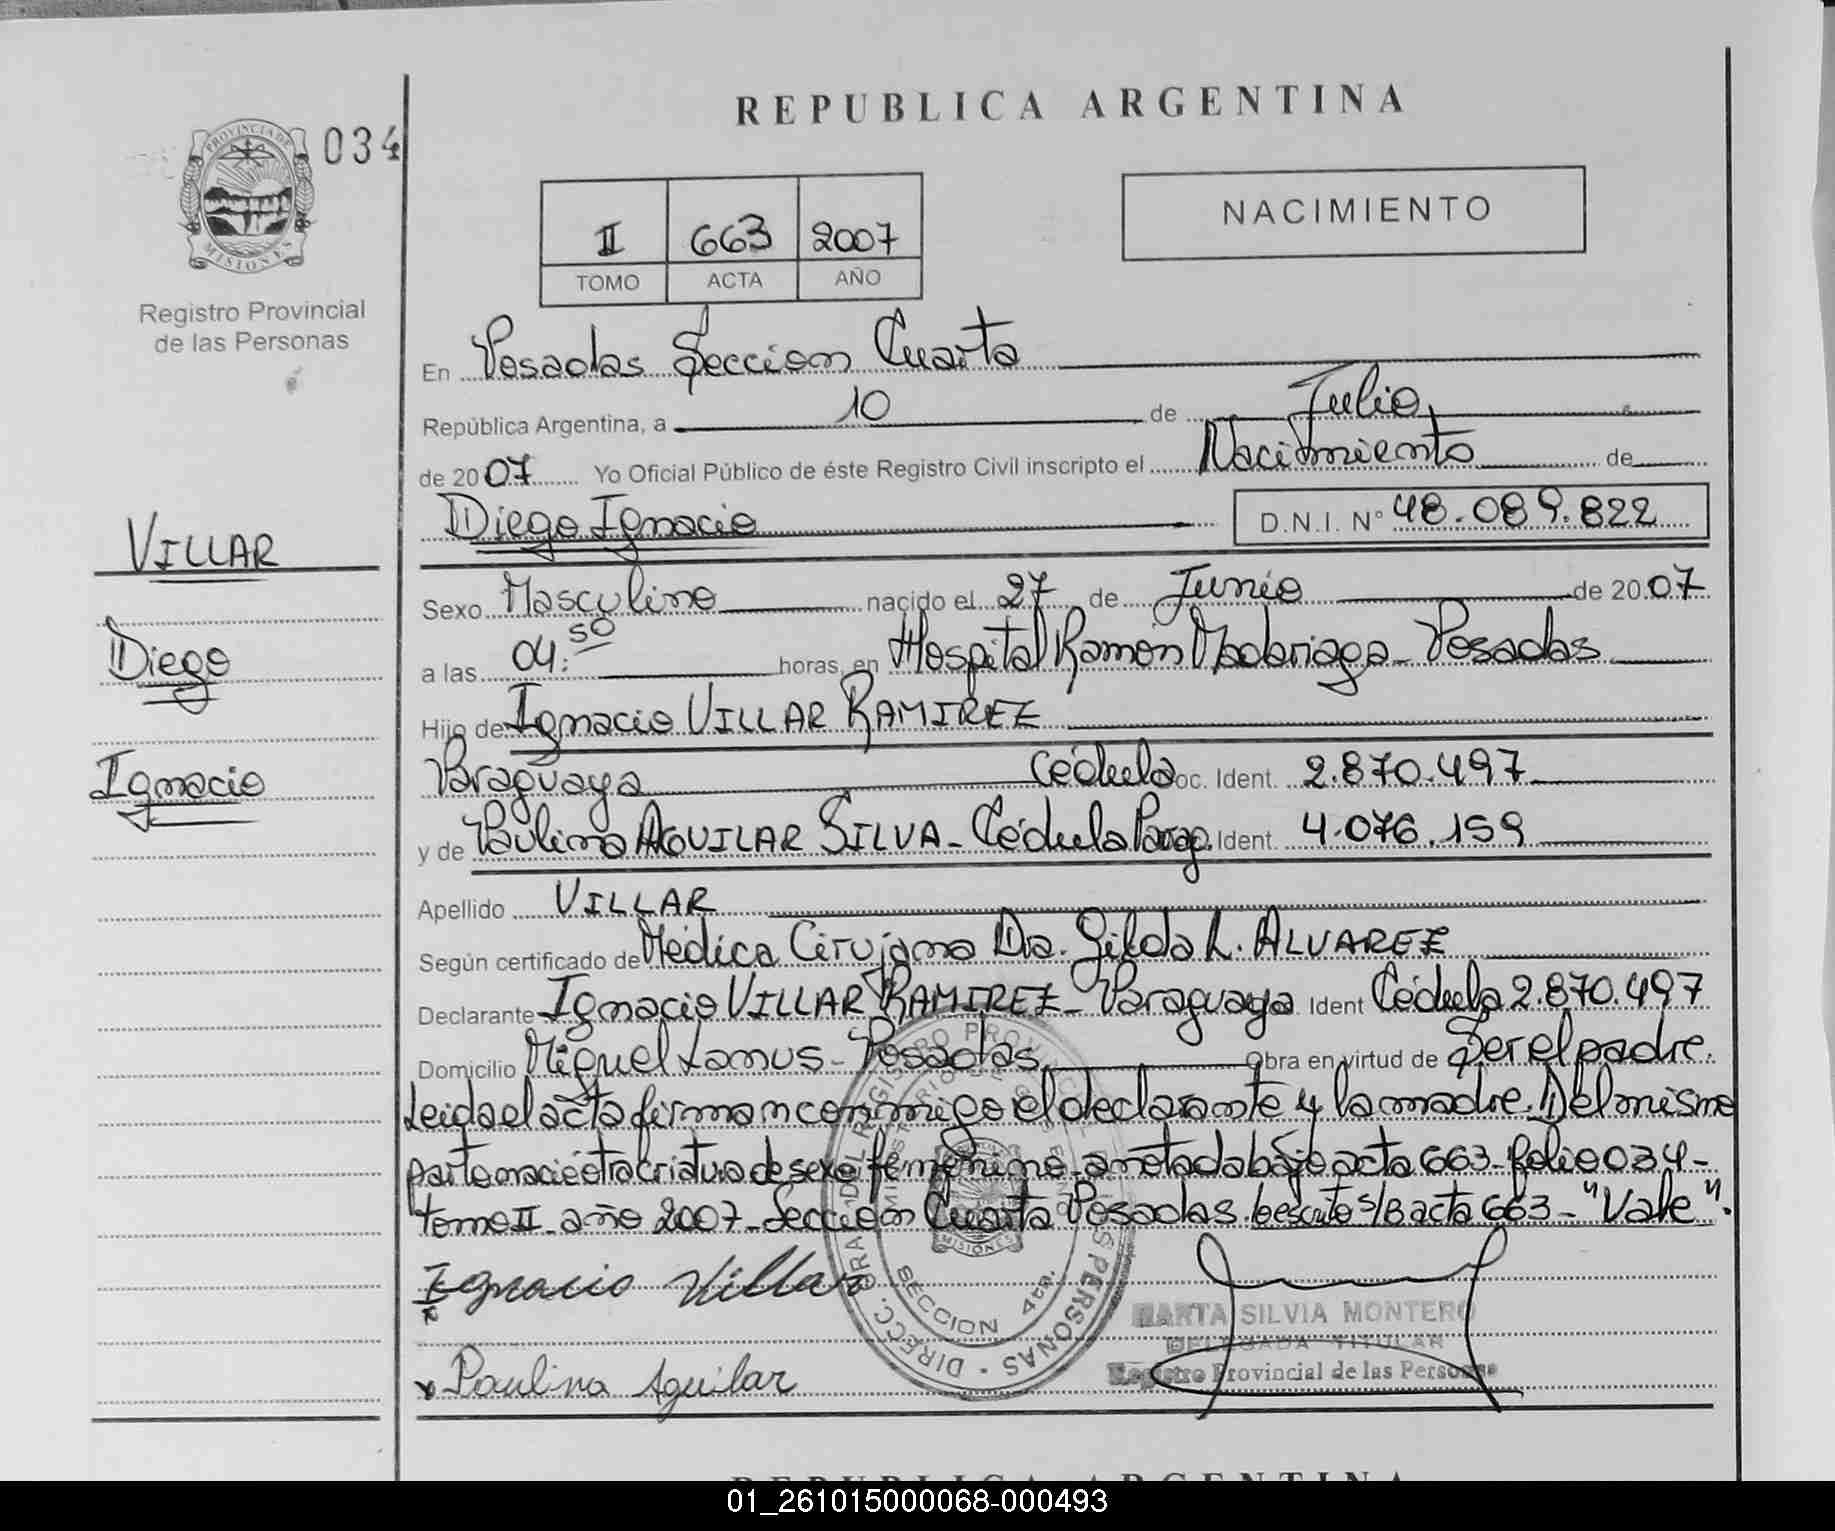 REPUBLICA ARGENTINA
PROVINCIA DE
MISIONES
034
Registro Provincial
de las Personas
II 663 2007
TOMO ACTA AÑO
NACIMIENTO
En Posadas Sección Cuarta
República Argentina, a 10 de Julio
de 2007 Yo Oficial Público de éste Registro Civil inscripto el Nacimiento de
Diego Ignacio D.N.I. N° 48.089.822
VILLAR
Diego
Ignacio
Sexo Masculino nacido el 27 de Junio de 2007
a las 04:50 horas, en Hospital Ramón Madariaga - Posadas
Hijo de Ignacio VILLAR RAMIREZ
Paraguaya Cédula oc. Ident. 2.870.497
y de Paulina AGUILAR SILVA - Cédula Parag. Ident. 4.076.159
Apellido VILLAR
Según certificado de Médica Cirujana Dra. Gilda L. ALVAREZ
Declarante Ignacio VILLAR RAMIREZ - Paraguaya Ident Cédula 2.870.497
Domicilio Miguel Lanus - Posadas Obra en virtud de Ser el padre.
Leida el acta firman conmigo el declarante y la madre. Del mismo
parto nació otra criatura de sexo femenino anotada bajo acta 663 - folio 034 -
tomo II año 2007 - Sección Cuarta Posadas. S/B acta 663 - "Vale".
Ignacio Villar
Paulina Aguilar
SECCION 4ta.
MISIONES
MARTA SILVIA MONTERO
DELEGADA TITULAR
Registro Provincial de las Personas
REPUBLICA ARGENTINA
01_261015000068-000493